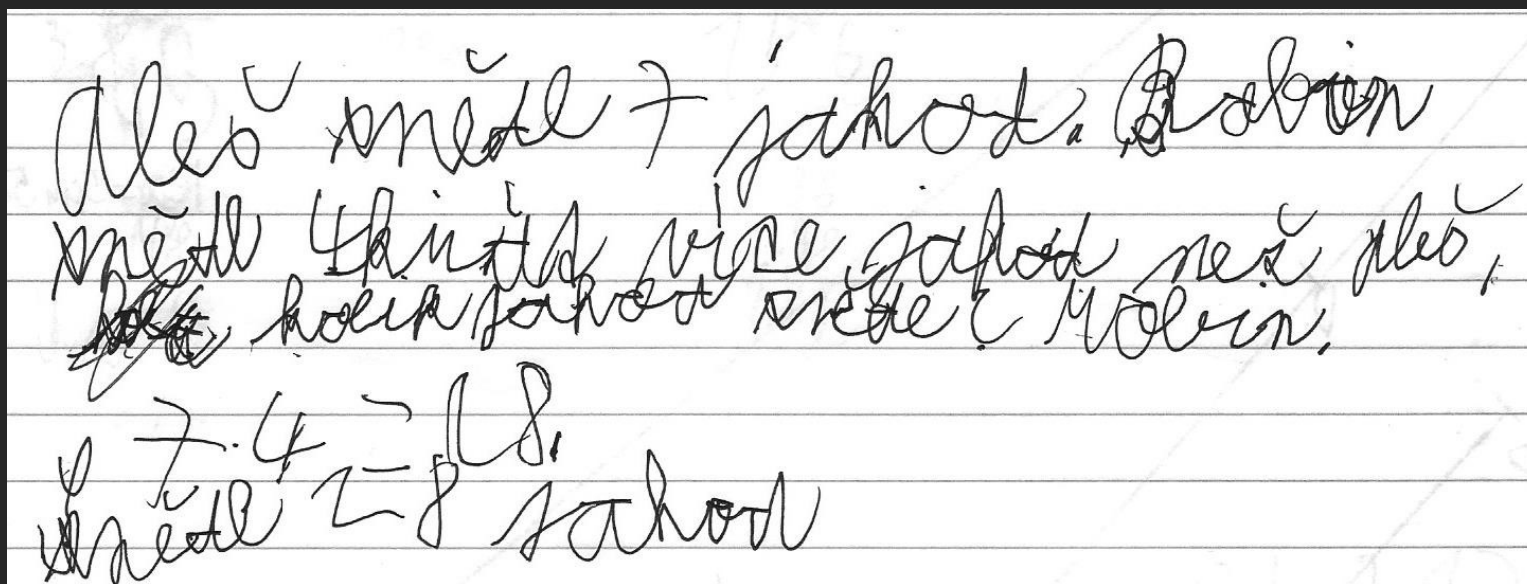 Aleš snědl 7 jahod. Robin
snědl 4krát více jahod než Aleš,
kolik jahod snědl Robin.
7.4=28.
Snědl 28 jahod